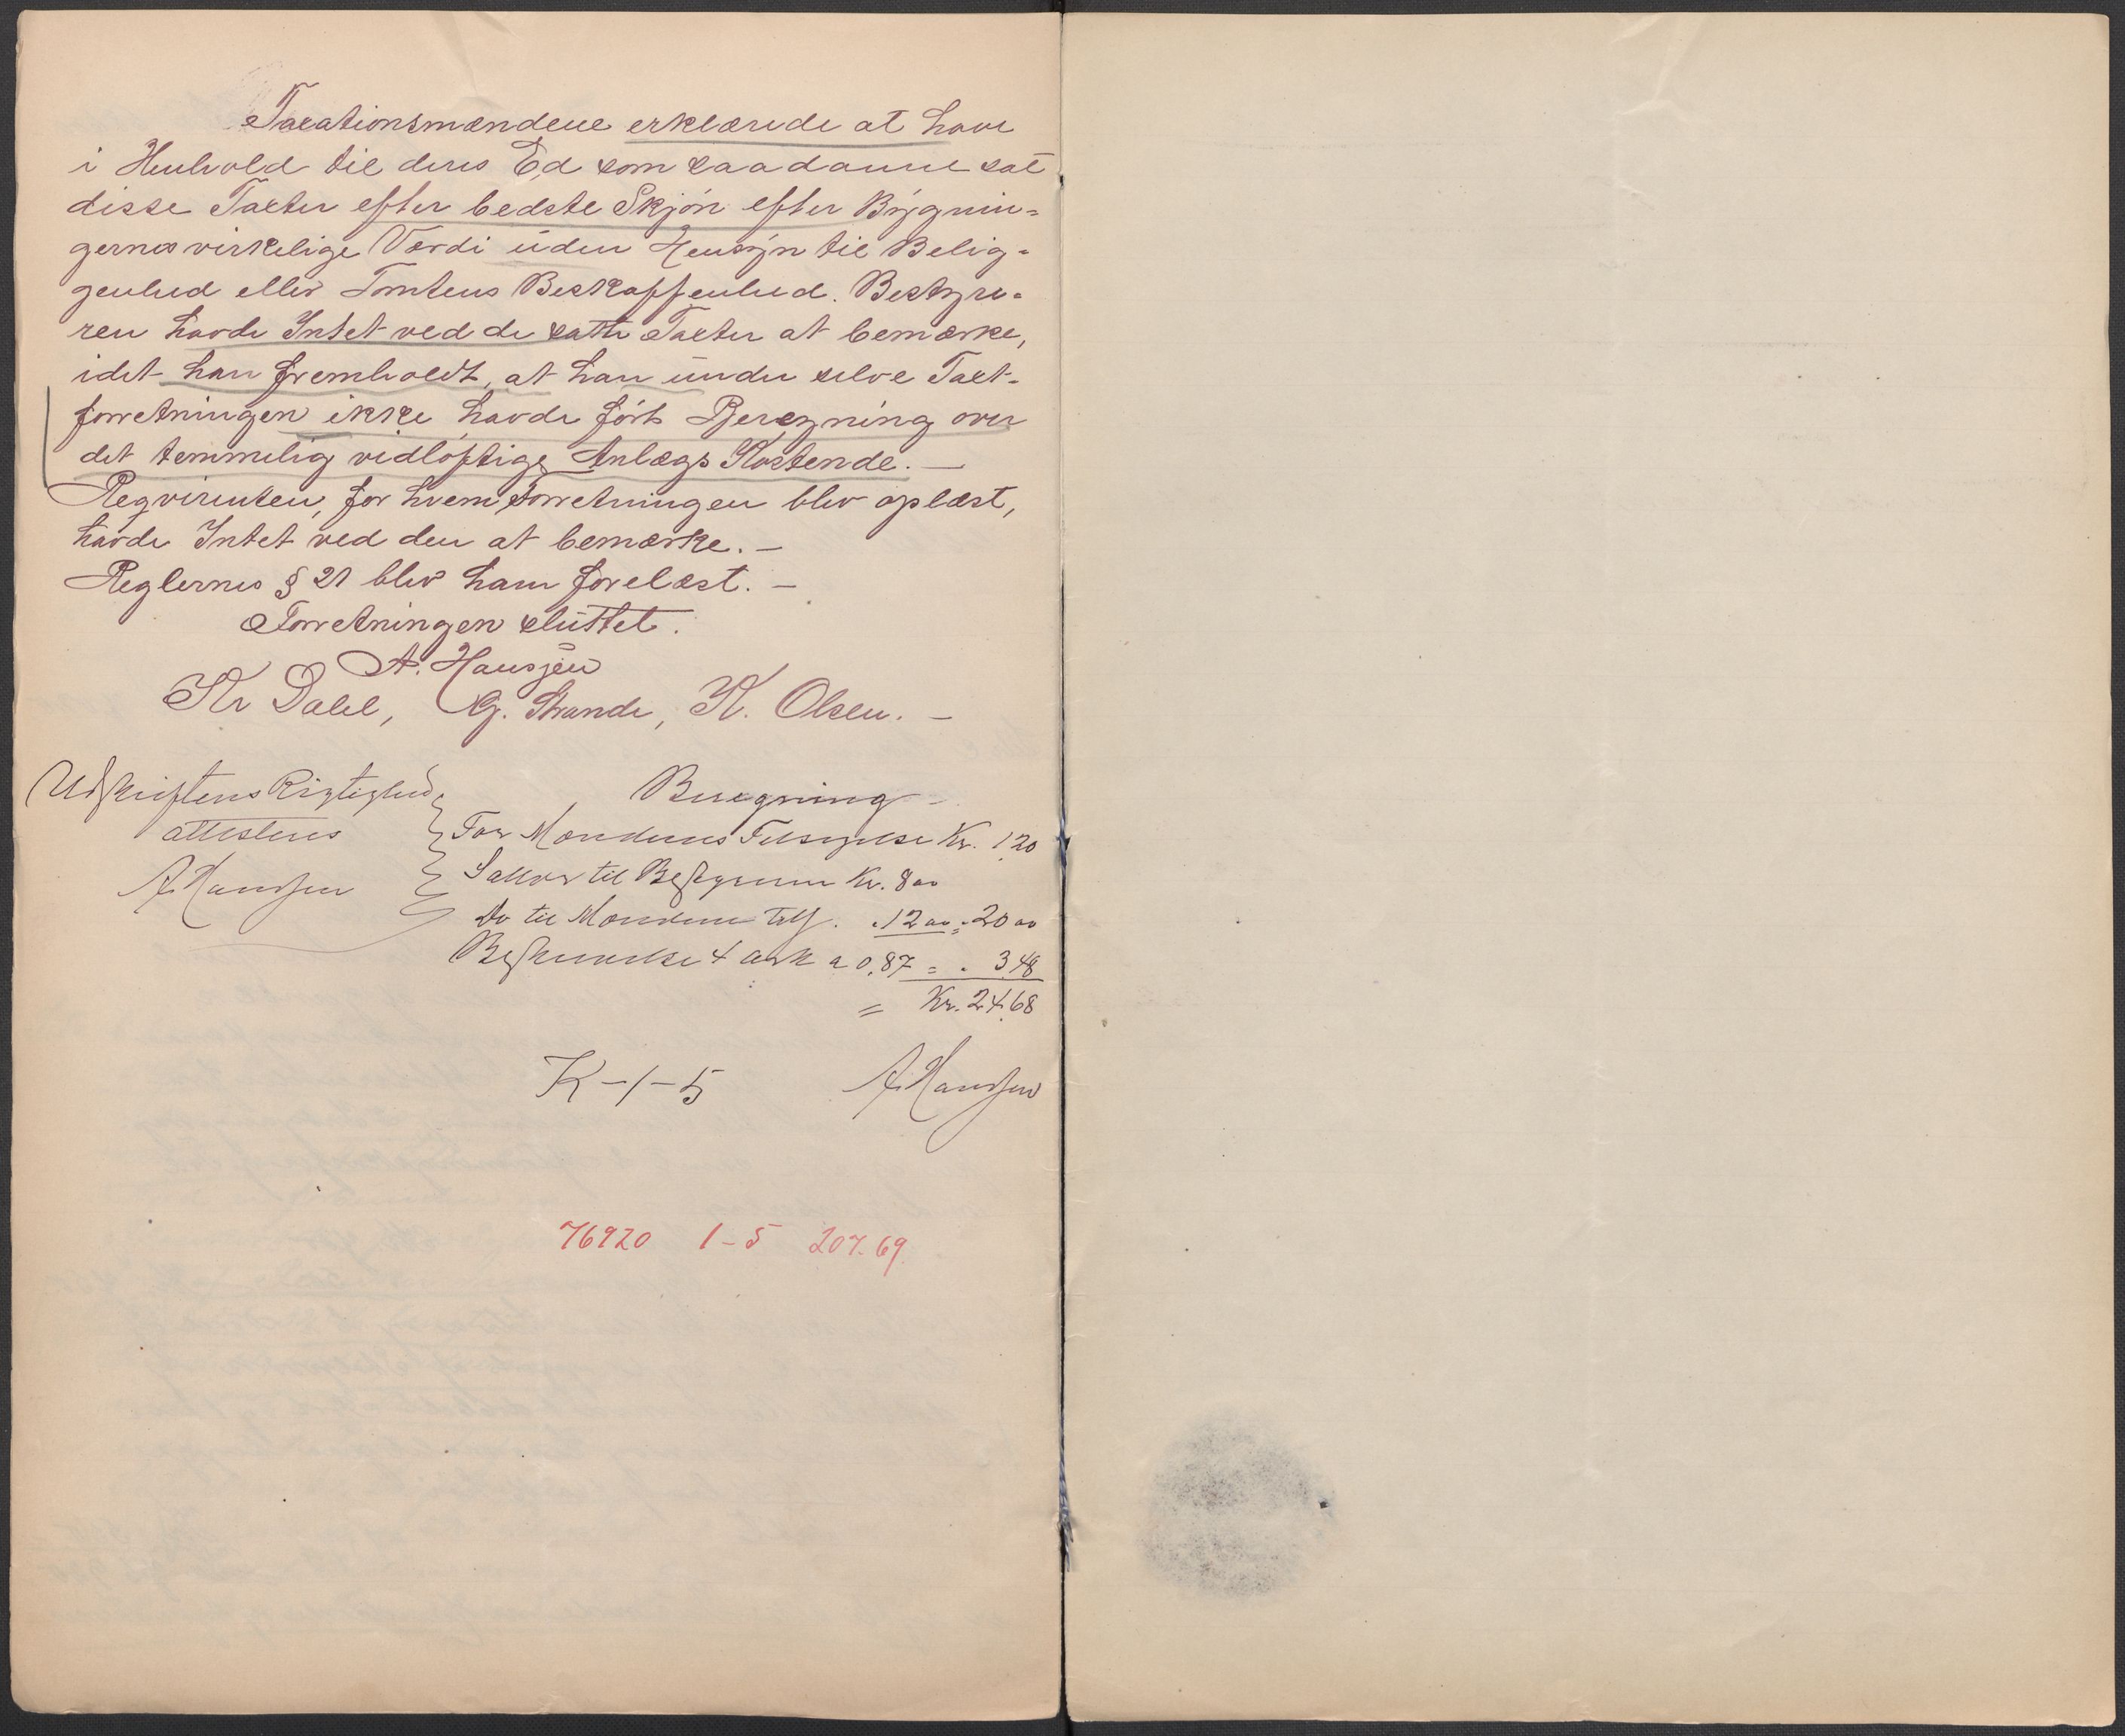 Taxationsmændene erklærede at have
i Henhold til deres Ed som saadanne sat
disse Taxter efter bedste Skjøn efter Bygnin-
gernes virkelige Værdi uden Hensyn til Belig-
genhed eller Tomtens Beskaffenhed. Bestyre-
ren havde Intet ved de satte Taxter at bemærke,
idet han fremholdt, at han under selve Taxt-
forretningen ikke havde ført Beregning over
det temmelig vidløftige Anlægs Kostende. —
Reqvirenten, for hvem Forretningen blev oplæst,
havde Intet ved den at bemærke. —
Reglernes § 21 blev ham forelæst. —
Forretningen sluttet.
A. Hansen
Kr Dahl, G. Strande, K. Olsen. —
Udskriftens Rigtighed
attesteres
A. Hansen
Beregning
For Mændenes Tilsigelse Kr. 1.20
Salær til Bestyreren Kr. 8 00
Do til Mændene tils. " 12 00 = 20 00
Beskrivelse 4 ark a 0,87 = " 3.48
= Kr. 24.68
K-1-5 A. Hansen
76920 1-5 207.69